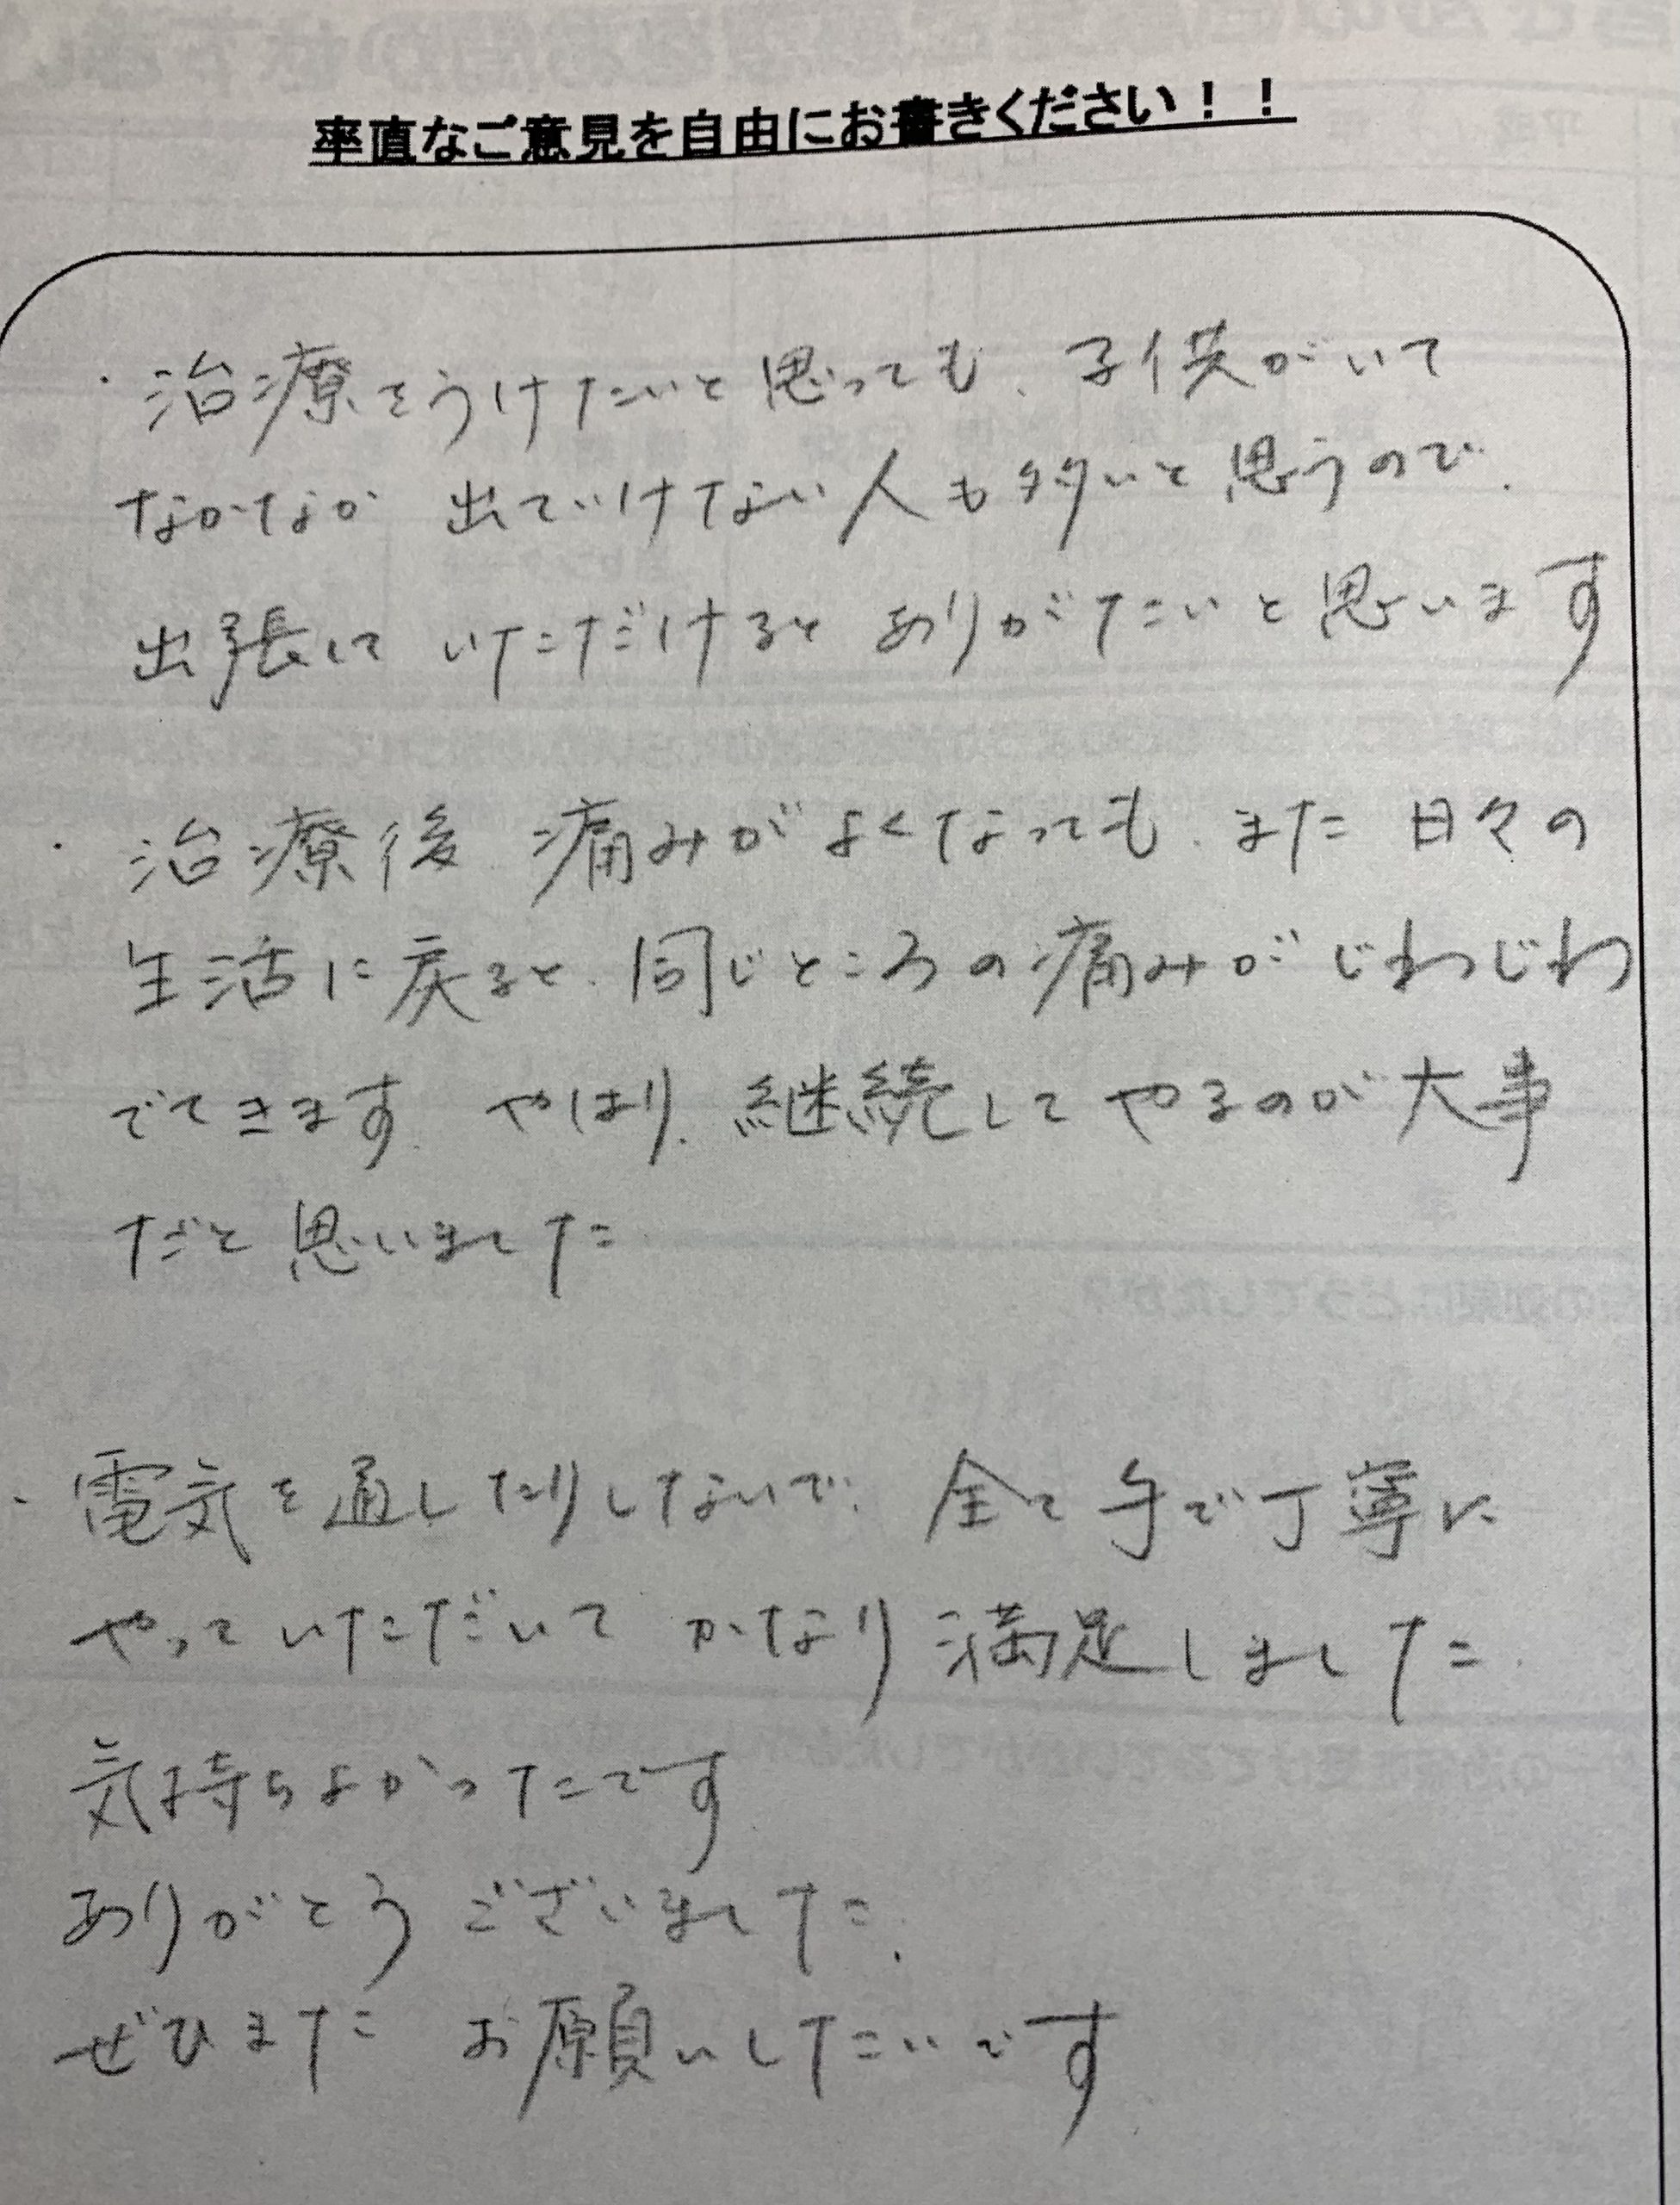 率直なご意見を自由にお書きください！！
・治療をうけたいと思っても、子供がいて
なかなか 出ていけない人も多いと思うので、
出張していただけるとありがたいと思います
・治療後 痛みがよくなっても、また日々の
生活に戻ると、同じところの痛みがじわじわ
でてきます。やはり、継続してやるのが大事
だと思いました
・電気を通したりしないで、全て手で丁寧に
やっていただいて かなり満足しました。
気持ちよかったです
ありがとう ございました。
ぜひまた お願いしたいです